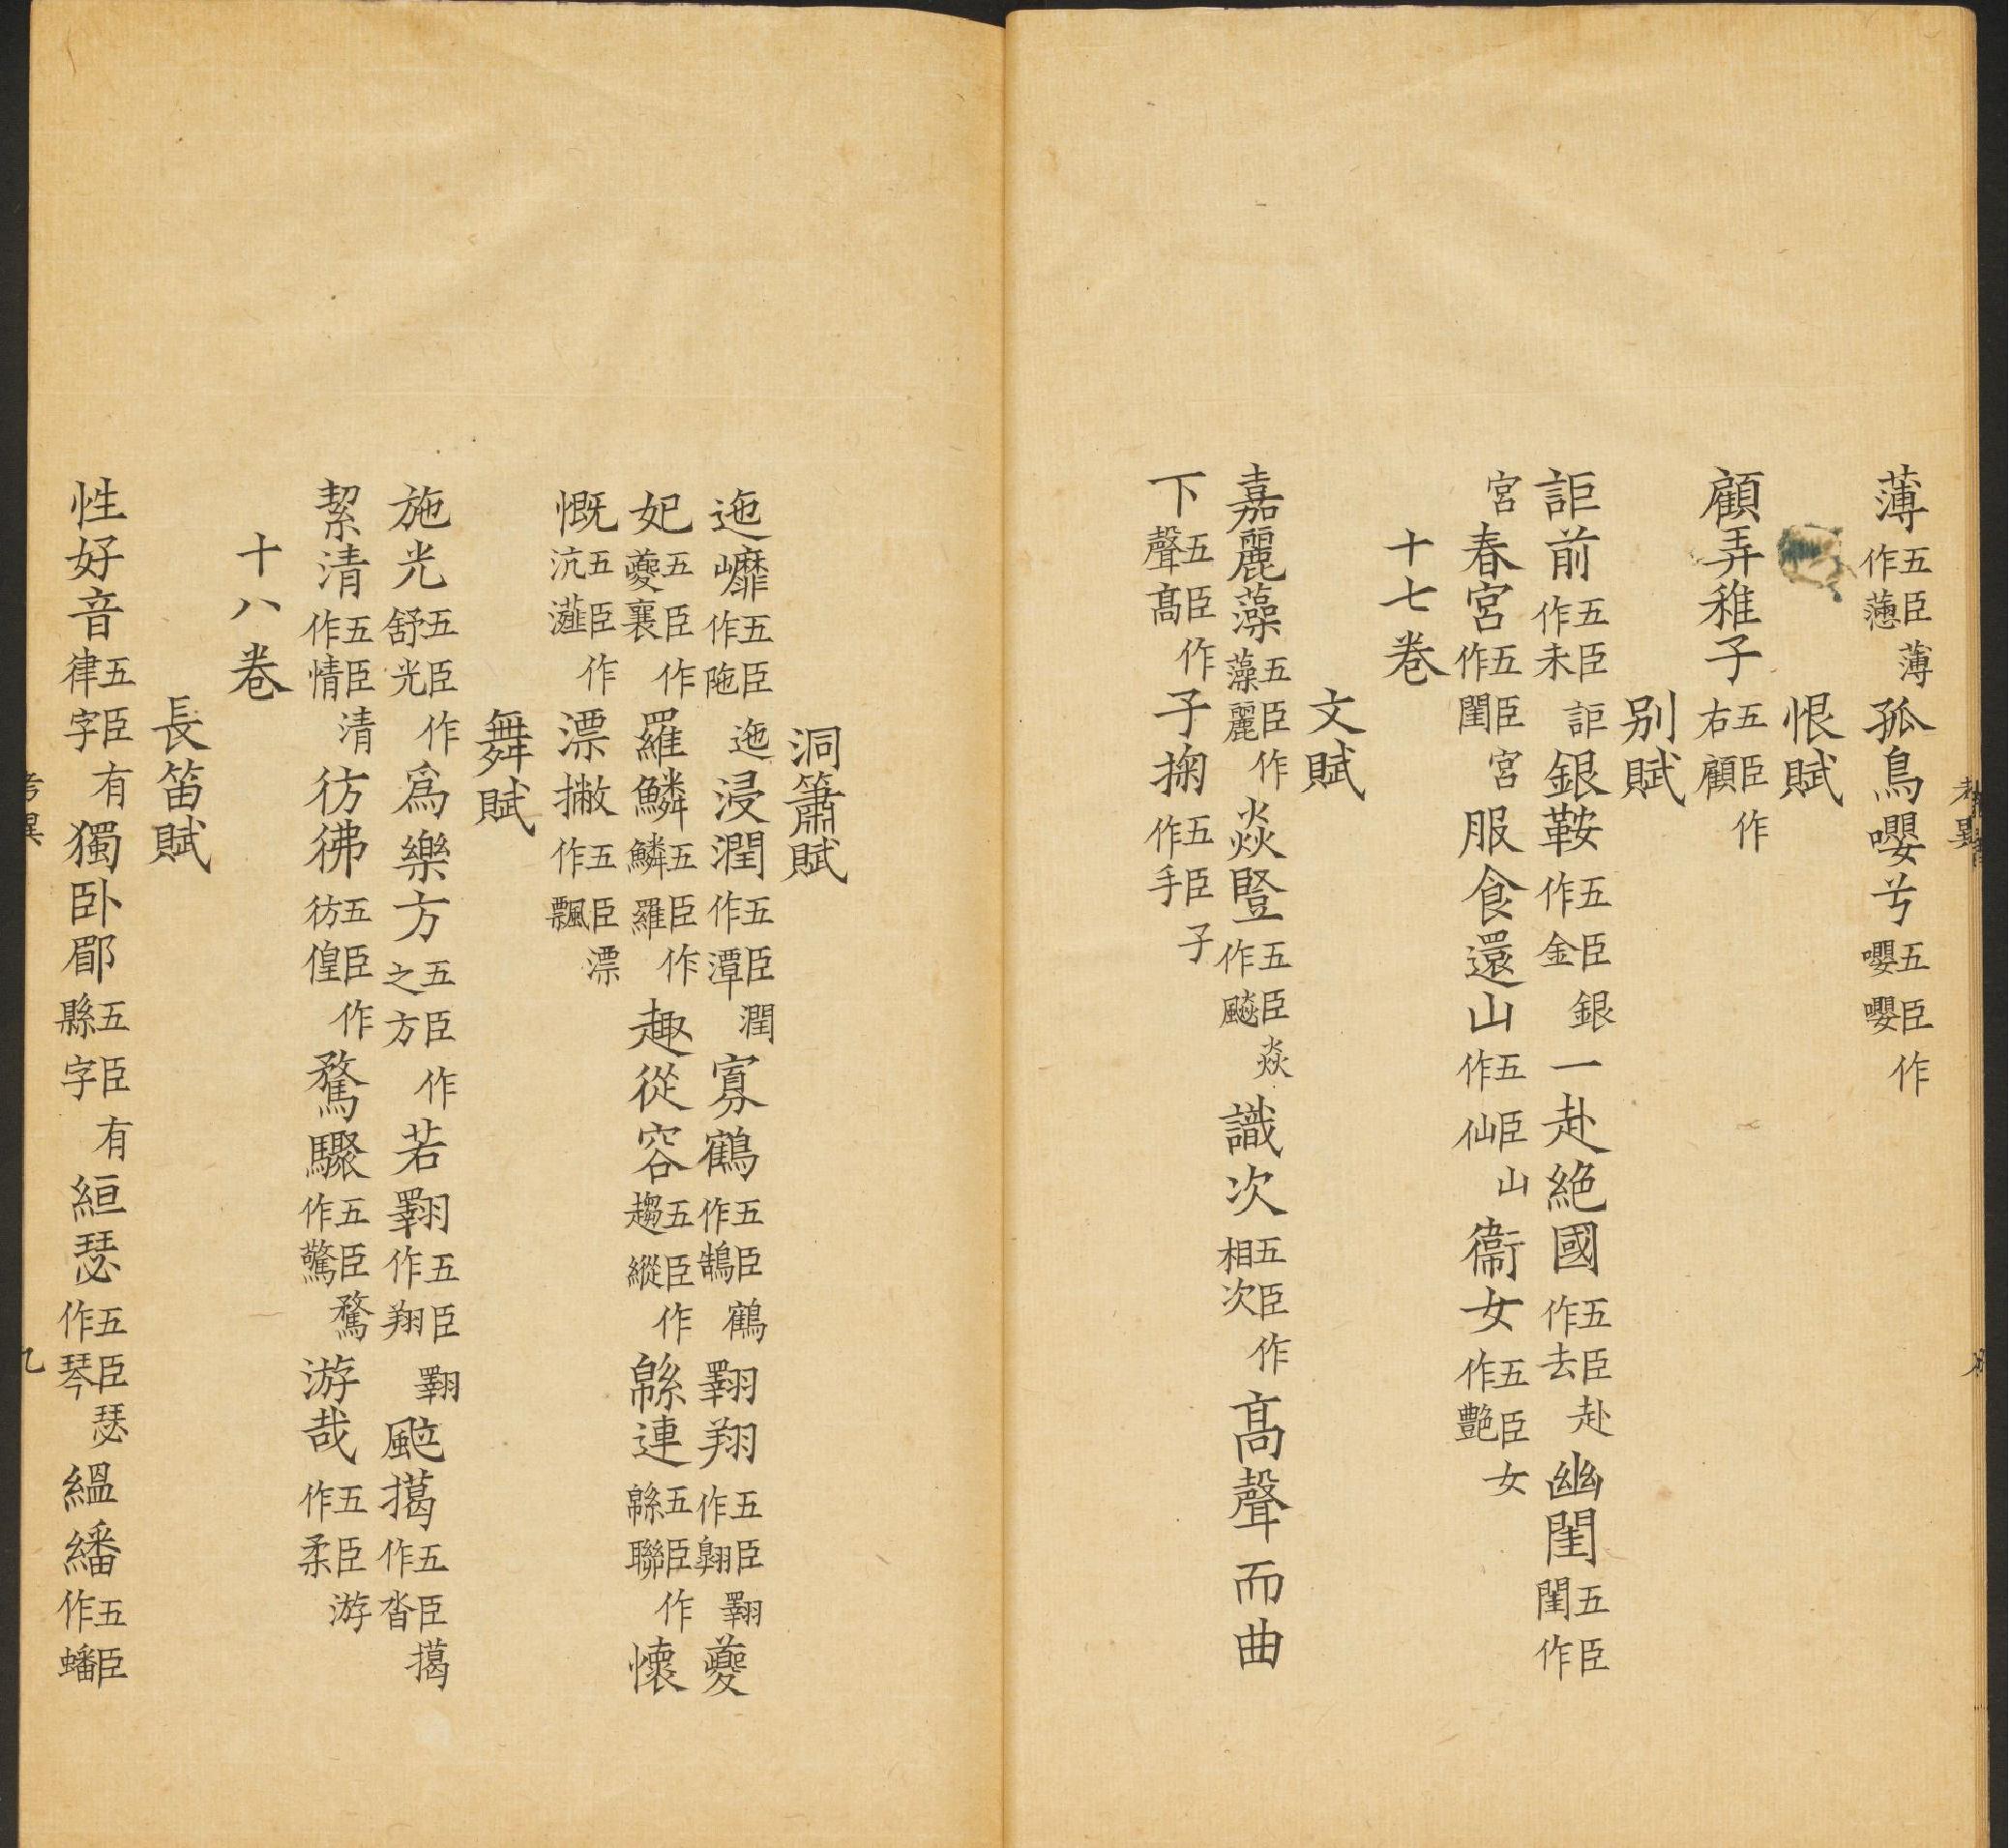 薄五臣薄作薳孤鳥嚶兮五臣作嚶嚶
恨賦
顧弄稚子五臣作右顧
别賦
詎前五臣詎作未銀鞍五臣銀作金一赴絶國五臣赴作去幽閨五臣作閨
宮春宮五臣宮作閨服食還山五臣山作仙衞女五臣女作艷
十七卷
文賦
嘉麗藻五臣作藻麗焱豎五臣焱作飈識次五臣作相次髙聲而曲
下五臣作聲髙子掬五臣子作手
洞簫賦
迤㠧五臣迤作陁浸潭五臣潤作潭寡鶴五臣鶴作鵠翾翔五臣翾作翱夔
妃五臣作夔襄羅鱗五臣作鱗羅趣從容五臣作趨縱緜連五臣作緜聯懷
慨五臣作沆瀣漂撇五臣漂作飄
舞賦
施光五臣作舒光爲樂方五臣作之方若翾五臣翾作翔颭擖五臣擖作沓
絜清五臣清作情彷彿五臣作彷徨騖驟五臣騖作驚游哉五臣游作柔
十八卷
長笛賦
性好音五臣有律字獨卧郿五臣有縣字絙瑟五臣瑟作琴緼繙五臣作蟠
考異
九